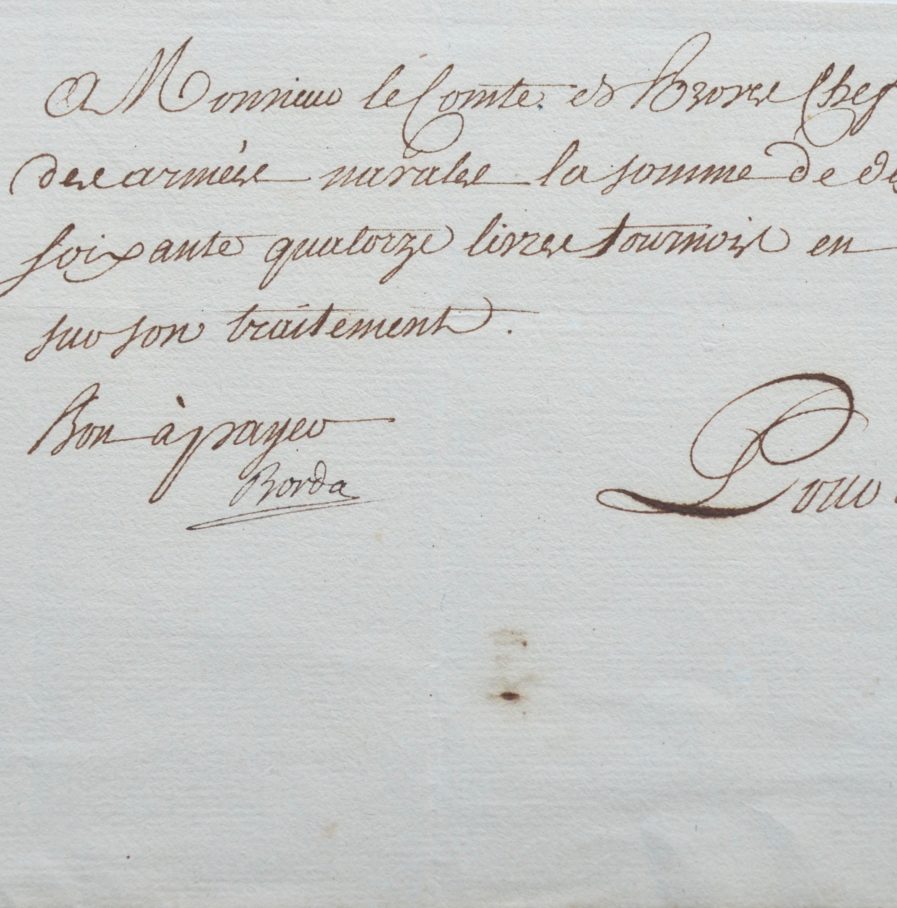 A Monsieur le Comte de Broves Chef
des armées navales la somme de de
soixante quatorze livres tournois en
sur son traitement.
Bon à payer
Borda
Pour